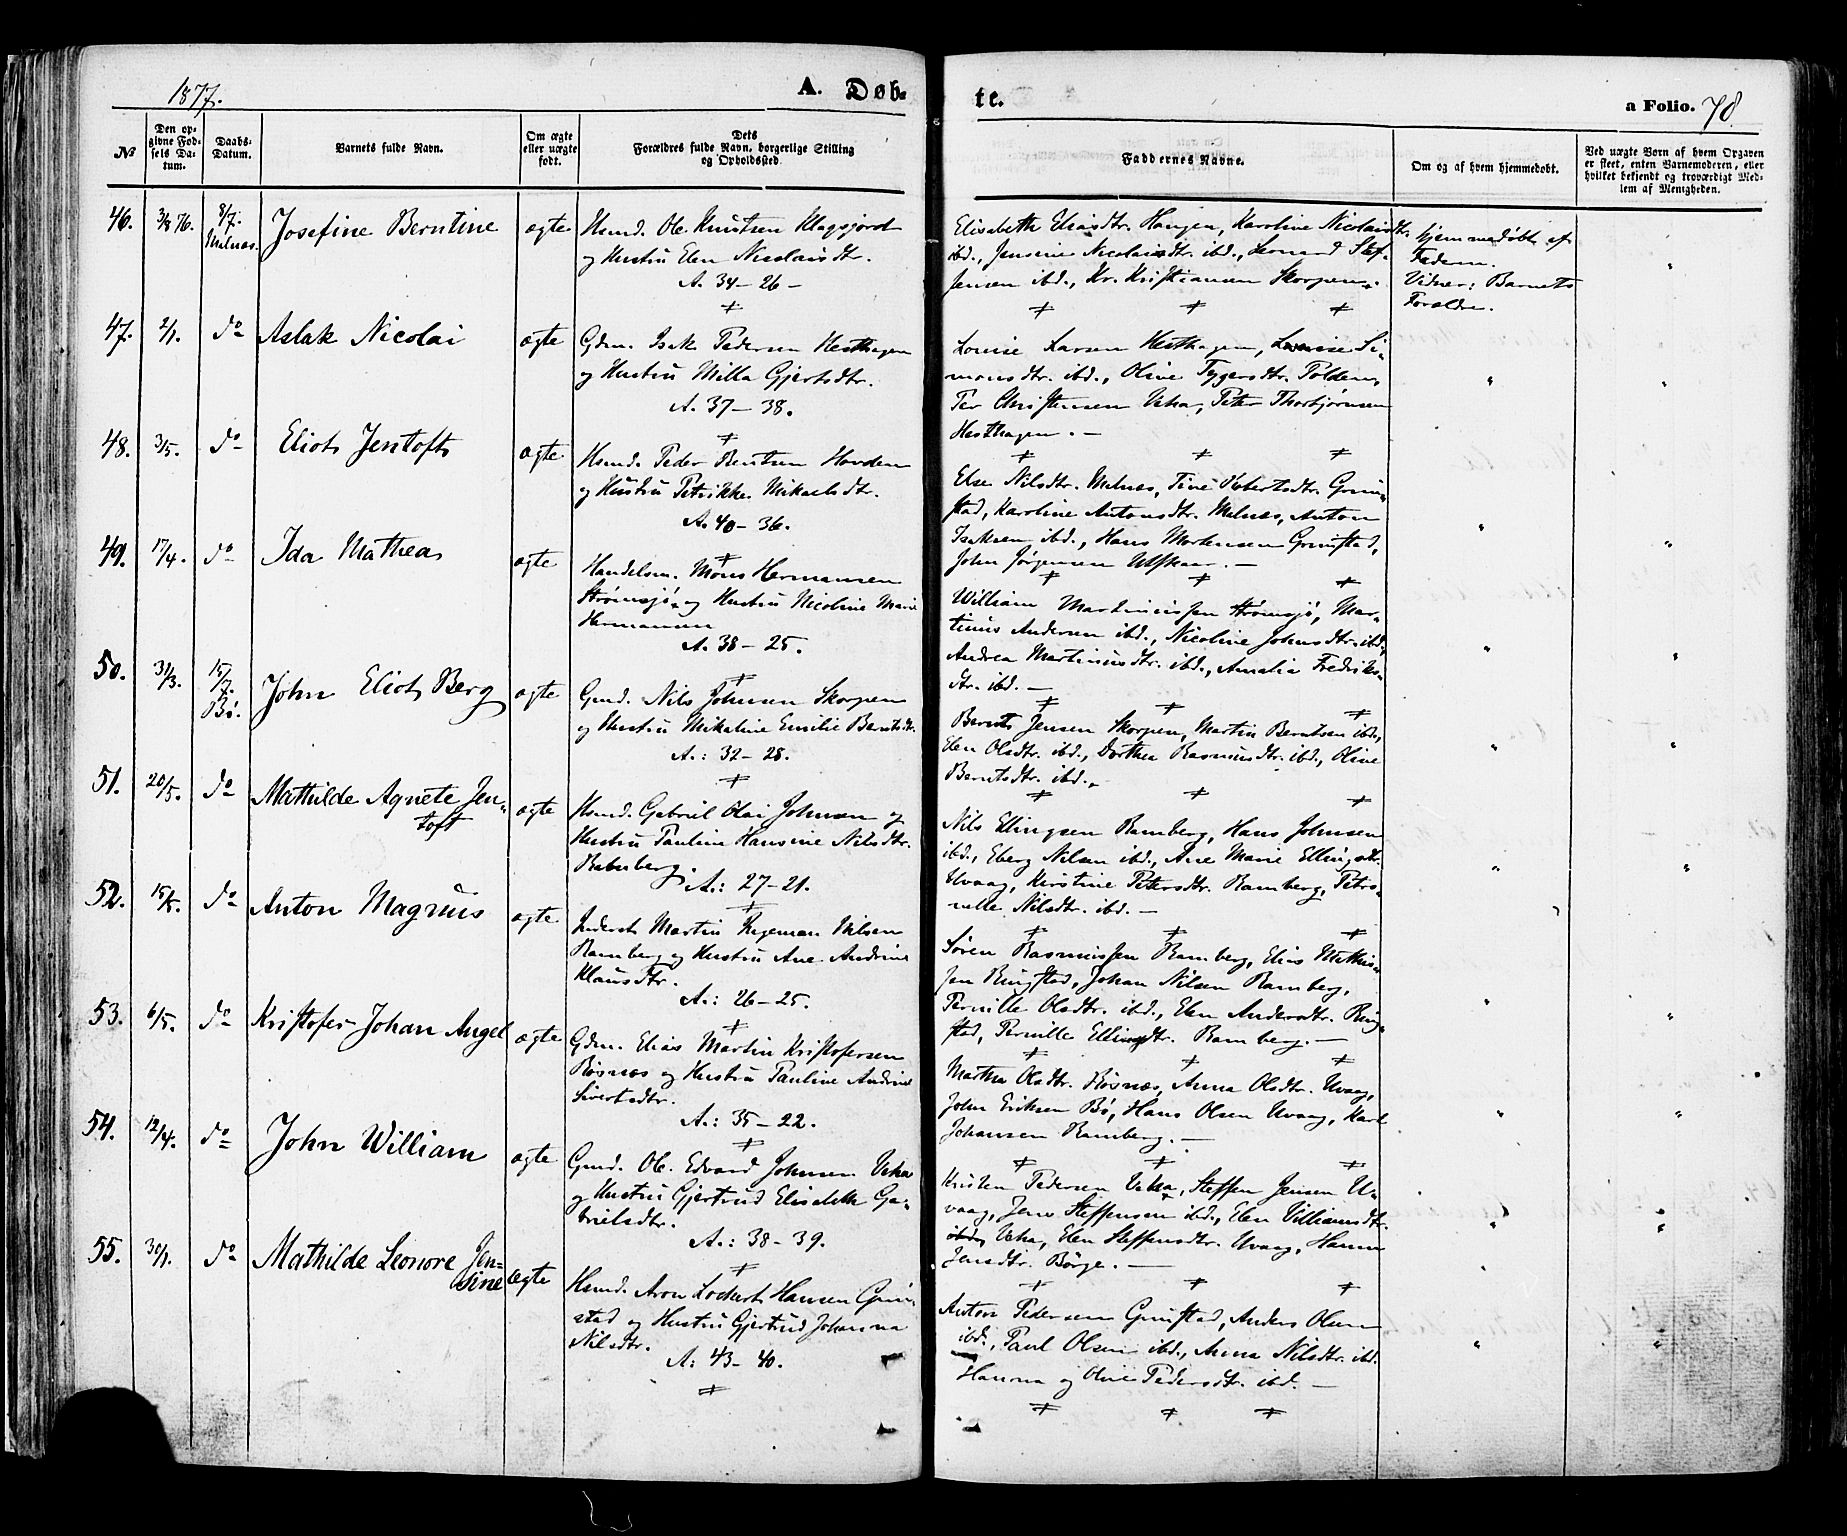 1877.
A. Døb-
te.
a Folio. 78.
No
Den op-
givne Fød-
sels Da-
tum.
Daabs-
Datum.
Barnets fulde Navn.
Om ægte
eller uægte
født.
Dets
Forældres fulde Navn, borgerlige Stilling
og Opholdssted.
Faddernes Navne.
Om og af hvem hjemmedøbt.
Ved uægte Børn af hvem Opgaven
er skeet, enten Barnemoderen, eller
hvilket bekjendt og troværdigt Med-
lem af Menigheden.
46. 3/8 76. 8/7. Melnæs. Josefine Berntine ægte
Hsmd. Ole Knutsen Klagsjord
og Hustru Elen Nicolaisdtr.
A. 34-26-
Elisabeth Eliasdtr. Haugen, Karoline Nicolaisdtr.
ibd., Jensine Nicolaisdtr. ibd., Leonard Stef-
fensen ibd., Kr. Kristiansen Skorpen.
Hjemmedøbt af
Faderen.
Vidner: Barnets
Forældre.
47. 2/1. do Aslak Nicolai ægte
Gdm. Isak Pedersen Hesthagen
og Hustru Milla Gjertsdtr.
A. 37-38.
Louise Larsen Hesthagen, Lovise Si-
monsdtr. ibd., Olive Tygersdtr. Tolden,
Per Christensen Veha, Peter Thorbjørnsen
Hesthagen.-
48. 3/5. do Eliot Jentoft ægte
Hsmd. Peder Bentsen Hovden
og Hustru Petrikke Mikaelsdtr.
A. 40-36.
Else Nilsdtr. Melnæs, Tine Robertsdtr. Grim-
stad, Karoline Antonsdtr. Melnæs, Anton
Isaksen ibd., Hans Mortensen Grimstad,
John Jørgensen Ulfskaar.-
49. 17/4. do Ida Mathea ægte
Handelsm. Møns Hermansen
Strømsjø, og Hustru Nicoline Marie
Hermansen
A. 38-25.
William Martinussen Strømsjø, Mar-
tinus Andersen ibd., Nicoline Johnsdtr. ibd.,
Andrea Martinusdtr. ibd., Amalia Fredriks-
dtr. ibd.-
50. 31/3. 15/7. Bø. John Eliot Berg ægte
Gmd. Nils Johnsen Skorpen
og Hustru Mikaline Emilie Berntsdtr.
A.: 32-28.
Bernt Jensen Skorpen, Martin Berntsen ibd.,
Elen Olsdtr. ibd., Dorthea Rasmusdtr. ibd., Olive
Berntsdtr. ibd.
51. 20/5. do Mathilde Agnete Jen-
toft ægte
Hsmd. Gabriel Olai Johnsen og
Hustru Pauline Hansine Nilsdtr.
Ramberg.
A.: 27-21.
Nils Ellingsen Ramberg, Hans Johnsen
ibd., Eberg Nilsen ibd., Ane Marie Ellingsdtr.
Uvaag, Kirstine Petersdtr. Ramberg, Petro-
nelle Nilsdtr. ibd.-
52. 15/5. do Anton Magnus ægte
Inderst Martin Hegeman Nilsen
Ramberg og Hustru Ane Andrine
Klausdtr.
A.: 26-25.
Søren Rasmussen Ramberg, Elias Mathis-
sen Ringstad, Johan Nilsen Ramberg,
Pernille Olsdtr. ibd., Elen Andersdtr. Ring-
stad, Pernille Ellingsdtr. Ramberg.-
53. 6/5. do Kristofer Johan Angel ægte
Gdm. Elias Martin Kristofersen
Røsnæs og Hustru Pauline Andrine
Sivertsdtr.
A.: 35-22.
Martha Olsdtr. Røsnæs, Anna Olsdtr. Uvaag,
John Eriksen Bø, Hans Olsen Uvaag, Karl
Johansen Ramberg.-
54. 12/4. do John William ægte
Gmd. Ole Edvard Johnsen Veha
og Hustru Gjertrud Elisabeth Ga-
brielsdtr.
A.: 38-39.
Kristen Pedersen Veha, Steffen Jensen U-
vaag, Jens Steffensen ibd., Elen Villiamsdtr.
Veha, Elen Steffensdtr. Uvaag, Hanna
Jensdtr. Børge.-
55. 30/1. do Mathilde Leonore Jen-
sine ægte
Hsmd. Aron Lockert Hansen Grim-
stad og Hustru Gjertrud Johanna
Nilsdtr.
A: 43-40.
Anton Pedersen Grimstad, Anders Olsen
ibd., Paul Olsen ibd., Anna Nilsdtr. ibd.
Hanna og Olive Pedersdtr. ibd.-